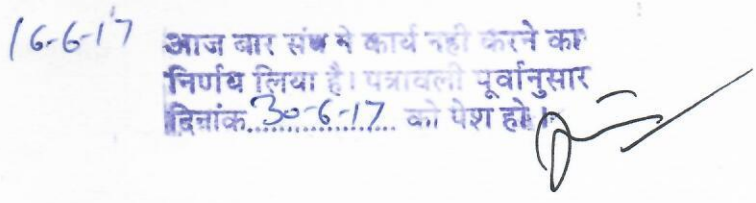 16-6-17 आज बार संघ ने कार्य नही करने का
निर्णय लिया है। पत्रावली पूर्वानुसार
दिनांक 30-6-17 को पेश हो।